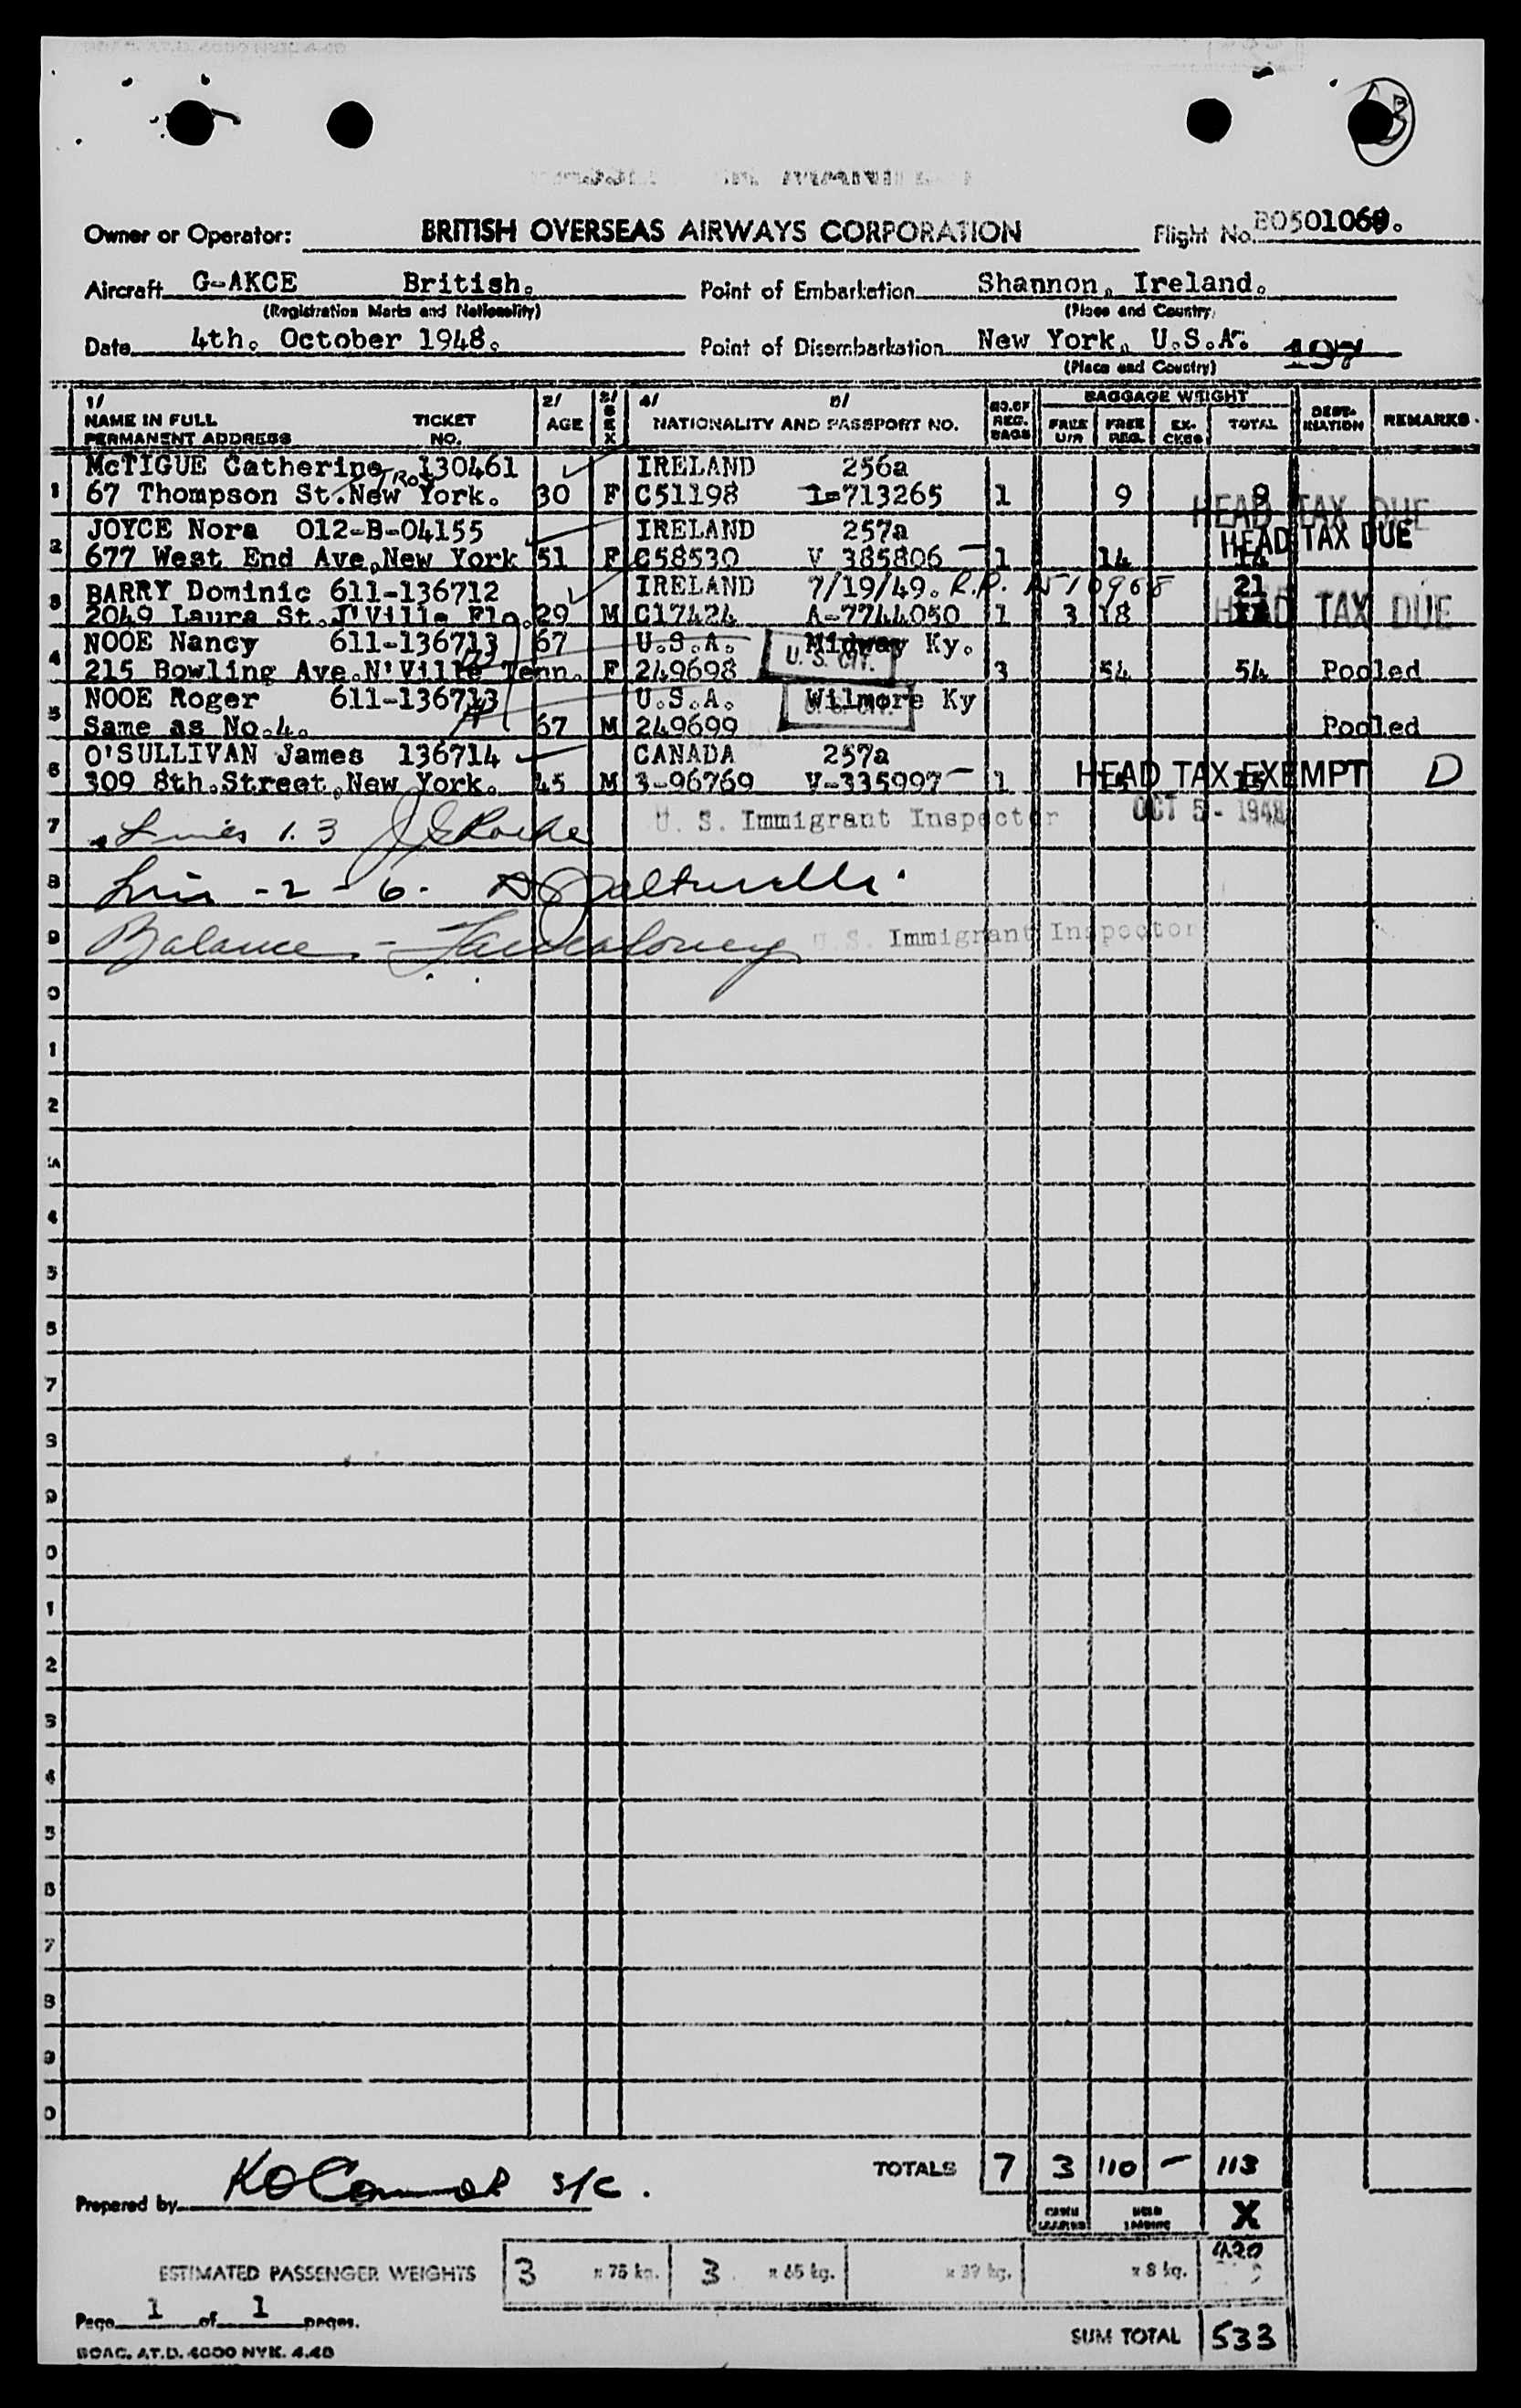 Owner or Operator: BRITISH OVERSEAS AIRWAYS CORPORATION Flight No.
Aircraft G-AKCE British. Point of Embarkation Shannon, Ireland.
(Registration Marks and Nationality) (Place and Country)
Date 4th. October 1948. Point of Disembarkation New York, U.S.A. 197
(Place and Country)
1/ 2/ 3/ 4/ 5/ BAGGAGE WEIGHT
NAME IN FULL TICKET AGE SEX NATIONALITY AND PASSPORT NO. NO. OF REG. BAGS FREE U/A FREE REG. EX. CKGS TOTAL DESTINATION REMARKS
PERMANENT ADDRESS NO.
McTIGUE Catherine 130461 IRELAND 256a
1 67 Thompson St. New York. 30 F C51198 I-713265 1 9 9 HEAD TAX DUE
JOYCE Nora 012-B-04155 IRELAND 257a
2 677 West End Ave, New York 51 F C58530 V 385806 1 14 14 HEAD TAX DUE
BARRY Dominic 611-136712 IRELAND 7/19/49. R.P. 21
3 2049 Laura St. J'Ville Fla. 29 M C17424 A-7744050 1 3 18 HEAD TAX DUE
NOOE Nancy 611-136713 67 U.S.A. Midway Ky.
4 215 Bowling Ave. N'Ville Tenn. F 249698 U.S. CIT. 3 54 54 Pooled
NOOE Roger 611-136713 U.S.A. Wilmore Ky
5 Same as No.4. 67 M 249699 Pooled
O'SULLIVAN James 136714 CANADA 257a
6 309 8th. Street, New York. 45 M 3-96769 V-335997 1 HEAD TAX EXEMPT D
7 Lines 1. 3 U. S. Immigrant Inspector OCT 5 - 1948
8 -2-6-
9 Balance - U. S. Immigrant Inspector
TOTALS 7 3 110 - 113
Prepared by s/c.
X
ESTIMATED PASSENGER WEIGHTS 3 x 75 kg. 3 x 65 kg. x 39 kg. x 8 kg. 420
Page 1 of 1 pages.
SUM TOTAL 533
BOAC. AT.D. 4000 NYK. 4.48